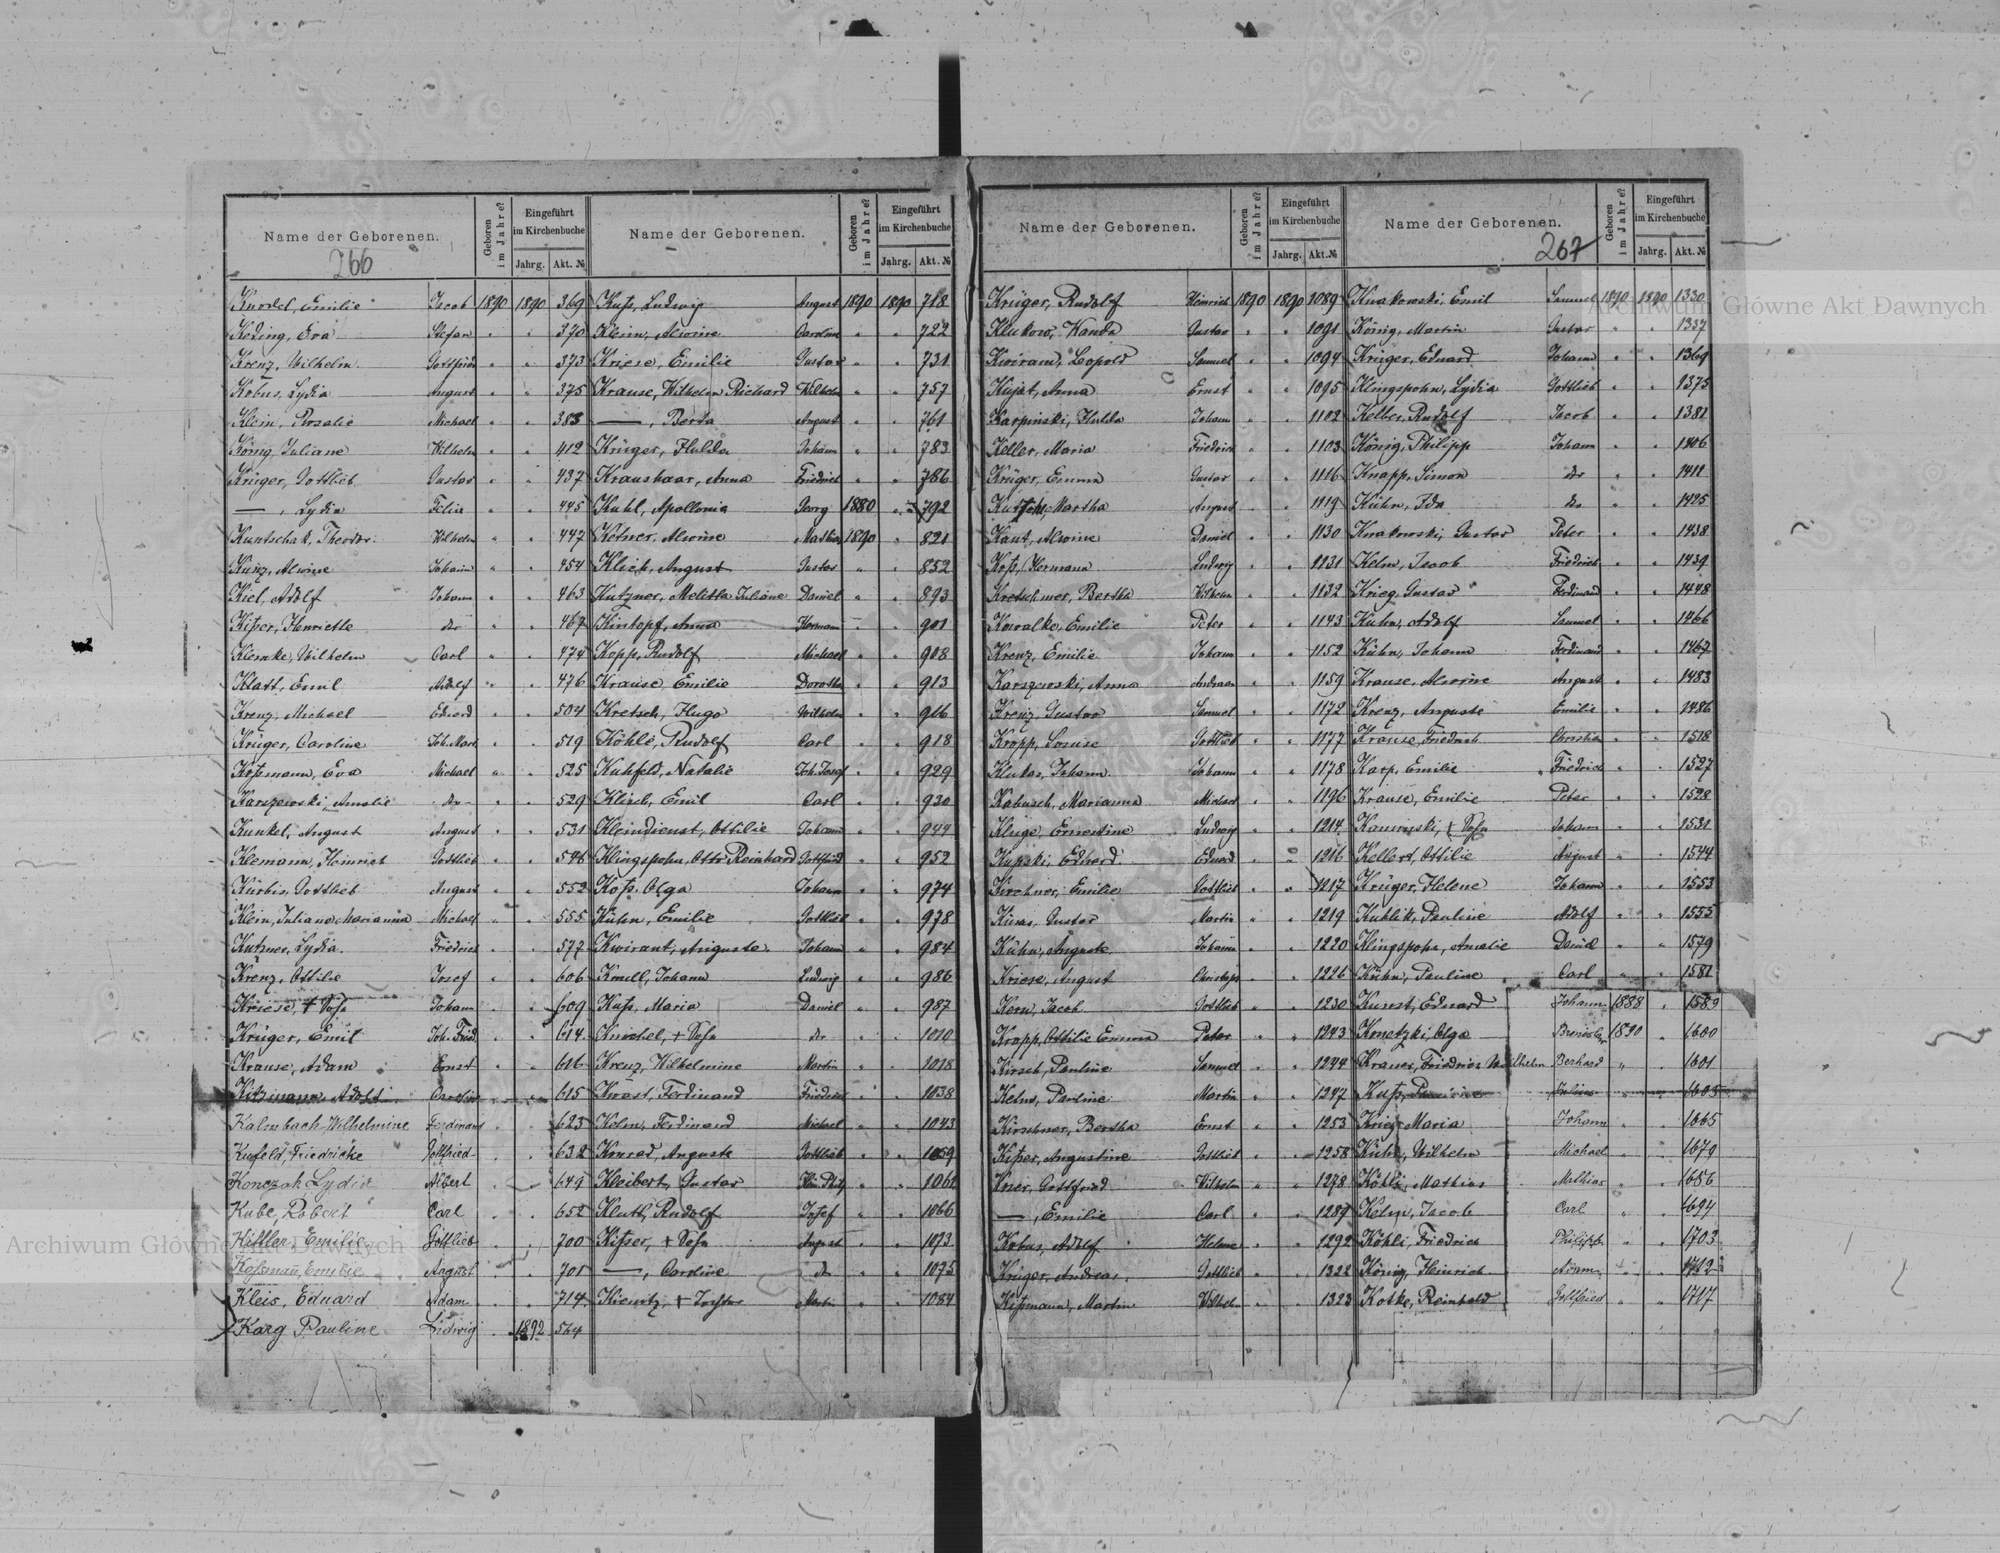 Name der Geborenen. Geboren im Jahre? Eingeführt im Kirchenbuche Jahrg. Akt. №
266
Kurdel, Emilie Jacob 1890 1890 369
Keding, Eva Stefan " " 370
Krenz, Wilhelm Gottfried " " 373
Kobus, Lydia August " " 375
Klein, Rosalie Michael " " 383
König, Juliane Wilhelm " " 412
Krüger, Gottlieb Gustav " " 437
—, Lydia Felix " " 445
Kuntschak, Theodor Wilhelm " " 447
Kunz, Alwine Johann " " 454
Kiel, Adolf Johann " " 463
Kißer, Henriette der " " 467
Kiemke, Wilhelm Carl " " 474
Klatt, Emil Adolf " " 476
Krenz, Michael Eduard " " 504
Krüger, Caroline Joh. Mart. " " 519
Koßmann, Eva Michael " " 525
Karszewski, Amalie der " " 529
Kunkel, August August " " 531
Klemann, Heinrich Gottlieb " " 546
Kürbis, Gottlieb August " " 552
Klein, Juliana Marianna Michael " " 555
Kutzner, Lydia Friedrich " " 577
Krenz, Ottilie Josef " " 606
Kriese, + Sohn Johann " " 609
Krüger, Emil Joh. Fried. " " 614
Krause, Adam Ernst " " 616
Kitzmann, Adolf " " 615
Kalmbach, Wilhelmine Ferdinand " " 623
Kufeld, Friedricke Gottfried " " 632
Konczak Lydia Albert " " 649
Kube, Robert Carl " " 652
Kittler, Emilie Gottlieb " " 700
Koßmann, Emilie August " " 701
Kleis, Eduard Adam " " 714
Karg Pauline Ludwig " 1892 544
Name der Geborenen. Geboren im Jahre? Eingeführt im Kirchenbuche Jahrg. Akt. №
Kuß, Ludwig August 1890 1890 718
Klein, Alwine Caroline " " 722
Kriese, Emilie Gustav " " 731
Krause, Wilhelm Richard Wilhelm " " 757
—, Berta August " " 761
Krüger, Hulda Johann " " 783
Kraushaar, Anna Friedrich " " 786
Kuhl, Apollonia Georg 1880 " 792
Ketner, Alwine Mathias 1890 " 821
Klick, August Gustav " " 852
Kutzner, Melitta Juliane Daniel " " 893
Kintopf, Anna Hermann " " 901
Kopp, Rudolf Michael " " 908
Krause, Emilie Dorothea " " 913
Kretsch, Hugo Wilhelm " " 916
Köhle, Rudolf Carl " " 918
Kuhfeld, Natalie Joh. Josef " " 929
Klisch, Emil Carl " " 930
Kleindienst, Ottilie Johann " " 944
Klingspohn, Otto Reinhard Gottfried " " 952
Koß, Olga Johann " " 974
Kühn, Emilie Gottlieb " " 978
Kwirant, Augusta Johann " " 984
Knull, Johann Ludwig " " 986
Kuß, Maria Daniel " " 987
Knochel, + Sohn der " " 1010
Krenz, Wilhelmine Martin " " 1018
Kwast, Ferdinand Friedrich " " 1038
Kelm, Ferdinand Michael " " 1043
Konrad, Auguste Gottlieb " " 1059
Kleibert, Gustav " " 1061
Kluth, Rudolf Josef " " 1066
Kißer, + Sohn August " " 1073
—, Caroline der " " 1075
Kienitz, + Tochter Martin " " 1084
Name der Geborenen. Geboren im Jahre? Eingeführt im Kirchenbuche Jahrg. Akt. №
Krüger, Rudolf Heinrich 1890 1890 1089
Klukow, Wanda Gustav " " 1091
Kwirand, Leopold Samuel " " 1094
Kujat, Anna Ernst " " 1095
Karpinski, Hulda Johann " " 1102
Keller, Maria Friedrich " " 1103
Krüger, Emma Gustav " " 1116
Martha August " " 1119
Kant, Alwine Daniel " " 1130
Koß, Hermann Ludwig " " 1131
Kretschmer, Bertha Wilhelm " " 1132
Kowalke, Emilie Peter " " 1143
Krenz, Emilie Johann " " 1152
Karszewski, Anna Andreas " " 1159
Krenz, Gustav Samuel " " 1172
Kropp, Louise Gottlieb " " 1177
Klukas, Johann Johann " " 1178
Kabusch, Marianna Michael " " 1196
Kluge, Ernestine Ludwig " " 1214
Kupski, Eduard Eduard " " 1216
Kirchner, Emilie Gottlieb " " 1217
Kunas, Gustav Martin " " 1219
Kühn, Auguste Johann " " 1220
Kriese, August Christoph " " 1226
Korn, Jacob Gottlieb " " 1230
Krapp, Ottilie Emma Peter " " 1243
Kirsch, Pauline Samuel " " 1244
Kelm, Pauline Martin " " 1247
Kirschner, Bertha Ernst " " 1253
Kißer, Augustine Gottlieb " " 1258
Kner, Gottfried Wilhelm " " 1278
—, Emilie Carl " " 1289
Kobus, Adolf Helene " " 1292
Krüger, Andreas Gottlieb " " 1322
Kißmann, Martin Wilhelm " " 1323
Name der Geborenen. Geboren im Jahre? Eingeführt im Kirchenbuche Jahrg. Akt. №
267
Knakowski, Emil Samuel 1890 1890 1330
König, Martin Gustav " " 1337
Krüger, Eduard Johann " " 1369
Klingspohn, Lydia Gottlieb " " 1375
Kelber, Rudolf Jacob " " 1381
König, Philipp Johann " " 1406
Knapp, Simon der " " 1411
Kühn, Ida der " " 1425
Knakowski, Gustav Peter " " 1438
Kelm, Jacob Friedrich " " 1439
Krieg, Gustav Ferdinand " " 1448
Kühn, Adolf Samuel " " 1466
Kühn, Johann Ferdinand " " 1467
Krause, Alwine August " " 1483
Krenz, Auguste Emilie " " 1486
Krause, Friedrich Christian " " 1518
Karp, Emilie Friedrich " " 1527
Krause, Emilie Peter " " 1528
Kaminski, + Sohn Johann " " 1531
Kellert, Ottilie August " " 1544
Krüger, Helene Johann " " 1553
Kuklik, Pauline Adolf " " 1555
Klingspohn, Amalie David " " 1579
Kühn, Pauline Carl " " 1581
Kunst, Eduard Johann 1888 " 1589
Konetzki, Olga 1890 " 1600
Krause, Friedrich Wilhelm " " 1601
Kuß, Pauline Julius " " 1603
Krieg, Maria Johann " " 1665
Kühn, Wilhelm Michael " " 1679
Köhli, Mathias Mathias " " 1686
Kelm, Jacob Carl " " 1694
Köhli, Friedrich Philipp " " 1703
König, Heinrich Adam " " 1712
Kotke, Reinhold Gottfried " " 1717
Archiwum Główne Akt Dawnych
Archiwum Główne Akt Dawnych